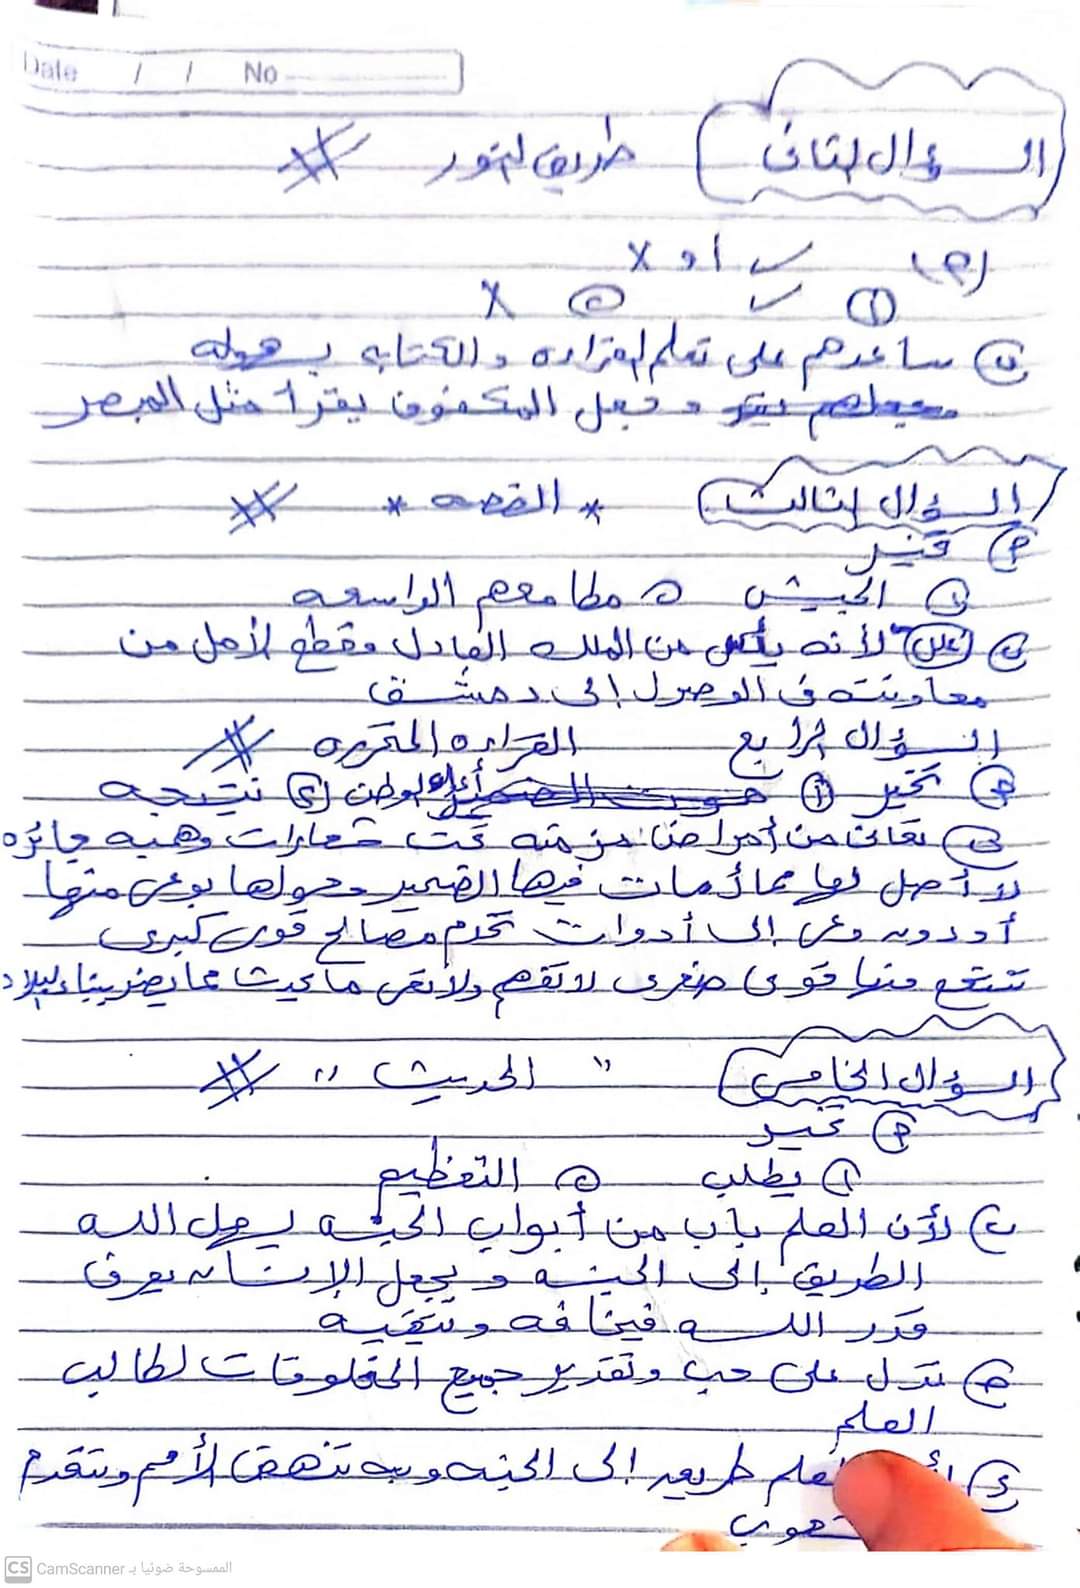 Date / / No
السؤال الثاني طريق النور
(م) ✓ أو X
① ✓ ② X
ب ساعدهم على تعلم القراءه والكتابه بسهوله
وجعل المكفوف يقرأ مثل المبصر
السؤال الثالث * القصه *
م تخير
① الجيش ② مطامعهم الواسعه
ب علل لأنه يأس من الملك العادل وقطع الأمل من
معاونته في الوصول إلى دمشق
السؤال الرابع القراءه المتحرره
م تخير ① أعداء الوطن ② نتيجه
ب تعانى من أمراض مزمنه تحت شعارات وهميه جائزه
لا أصل لها مما أزمات فيها الضمير وحولها بوعى منها
أو دون وعى إلى أدوات تخدم مصالح قوى كبرى
تنتفع منها قوى صغرى لا تفهم ولا تعى ما يحيث مما يضر ببناء البلاد
السؤال الخامس " الحديث "
م تخير
① يطلب ② التعظيم
ب لأن العلم باب من أبواب الجنه يسهل الله
الطريق إلى الجنه ويجعل الإنسان يعرف
قدر الله فيخافه ويتقيه
ج تدل على حب وتقدير جميع المخلوقات لطالب
العلم
د طريق إلى الجنه وبه تنهض الأمم وتتقدم
CS CamScanner الممسوحة ضوئيا بـ